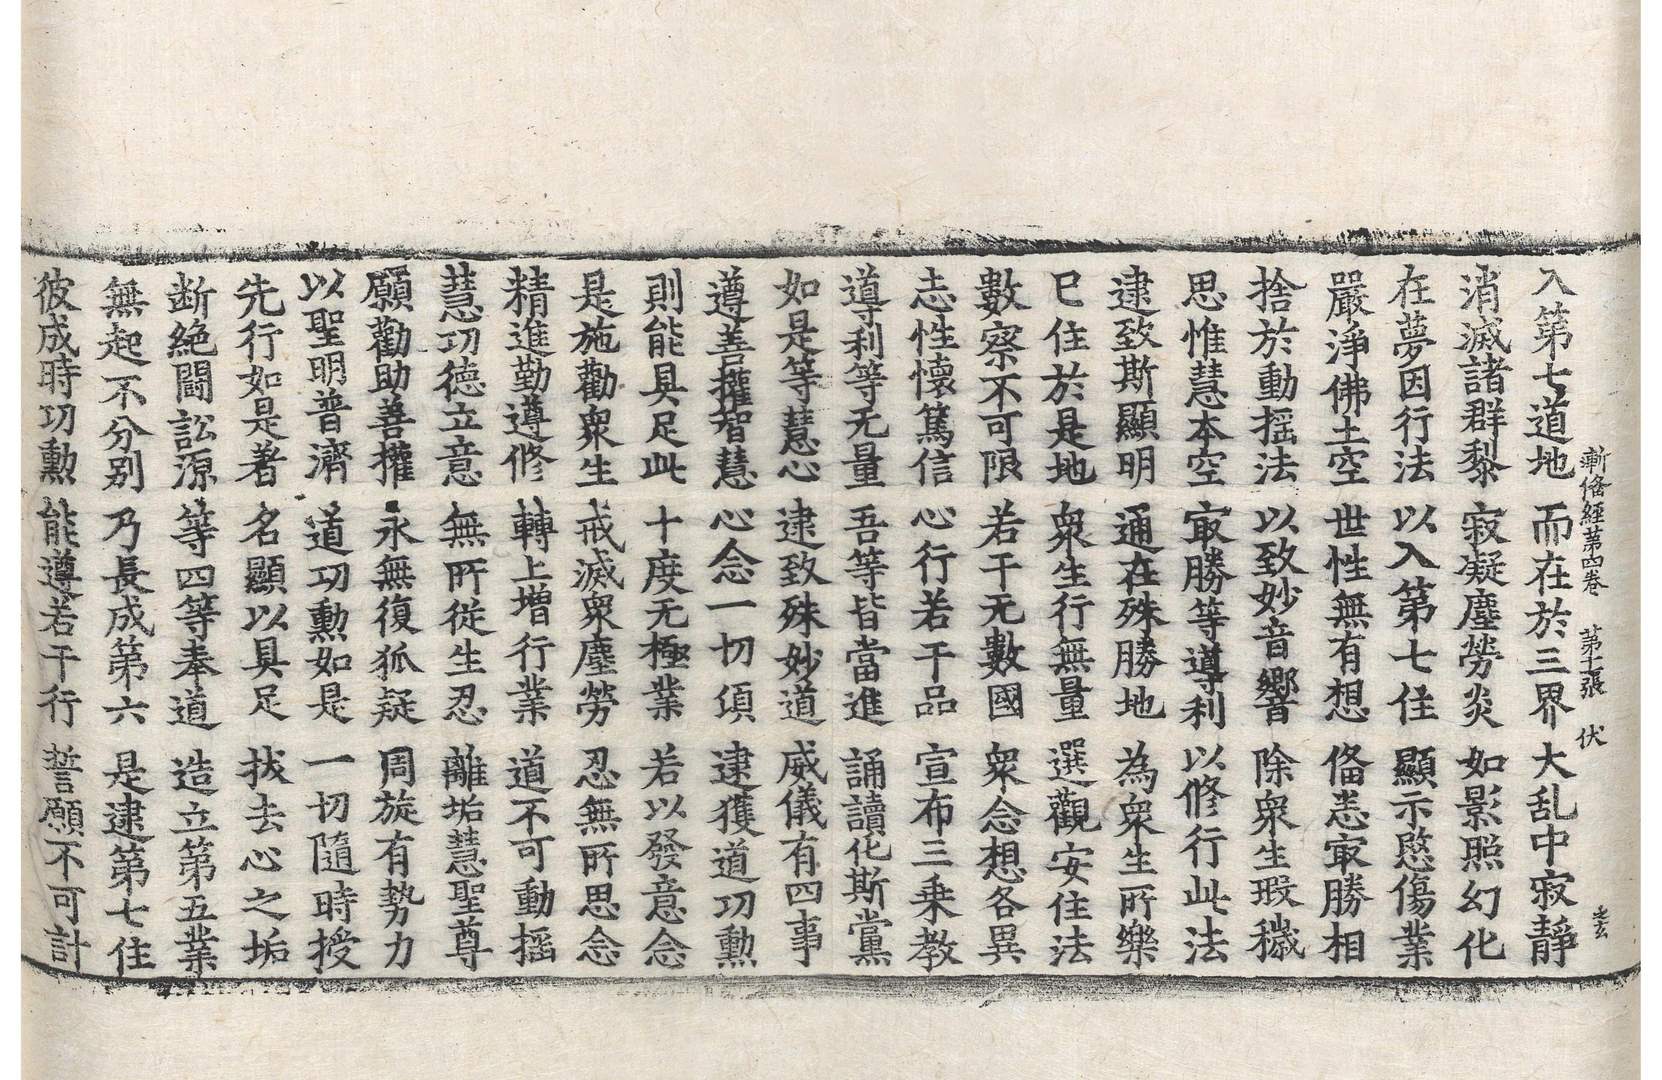 漸俻經第四卷　第十張　伏
入第七道地　而在於三界　大乱中寂靜
消滅諸群黎　寂凝塵勞炎　如影照幻化
在夢因行法　以入第七住　顯示愍傷業
嚴淨佛土空　世性無有想　俻悉㝡勝相
捨於動揺法　以致妙音響　除衆生瑕穢
思惟慧本空　㝡勝等導利　以修行此法
逮致斯顯明　通在殊勝地　為衆生所樂
已住於是地　衆生行無量　選觀安住法
數察不可限　若干无數國　衆念想各異
志性懷篤信　心行若干品　宣布三乗教
導利等无量　吾等皆當進　誦讀化斯黨
如是等慧心　逮致殊妙道　威儀有四事
遵善權智慧　心念一切須　逮獲道功勲
則能具足此　十度无極業　若以發意念
是施勸衆生　戒滅衆塵勞　忍無所思念
精進勤遵修　轉上增行業　道不可動揺
慧功德立意　無所從生忍　離垢慧聖尊
願勸助善權　永無復狐疑　周旋有勢力
以聖明普濟　道功勲如是　一切隨時授
先行如是者　名顯以具足　拔去心之垢
断絶鬪訟源　等四等奉道　造立第五業
無起不分別　乃長成第六　是逮第七住
彼成時功勲　能遵若干行　誓願不可計